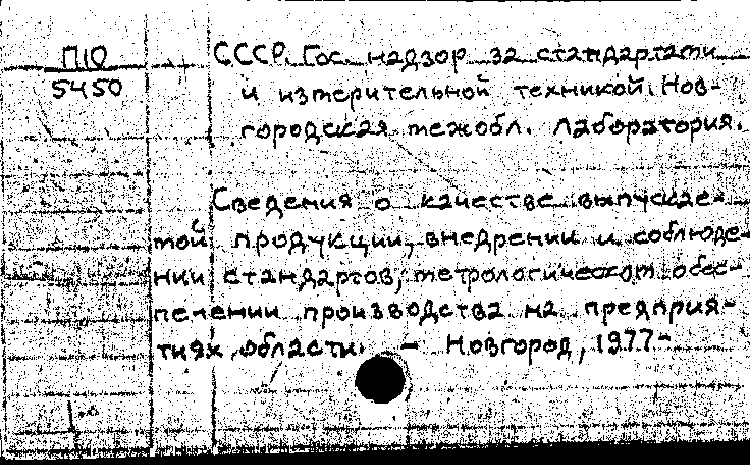 П10
5450
СССР. Гос. надзор за стандартами
и измерительной техникой. Нов-
городская межобл. лаборатория.
Сведения о качестве выпускае-
мой продукции, внедрении и соблюде-
нии стандартов, метрологическом обес-
печении производства на предприя-
тиях области. — Новгород, 1977-